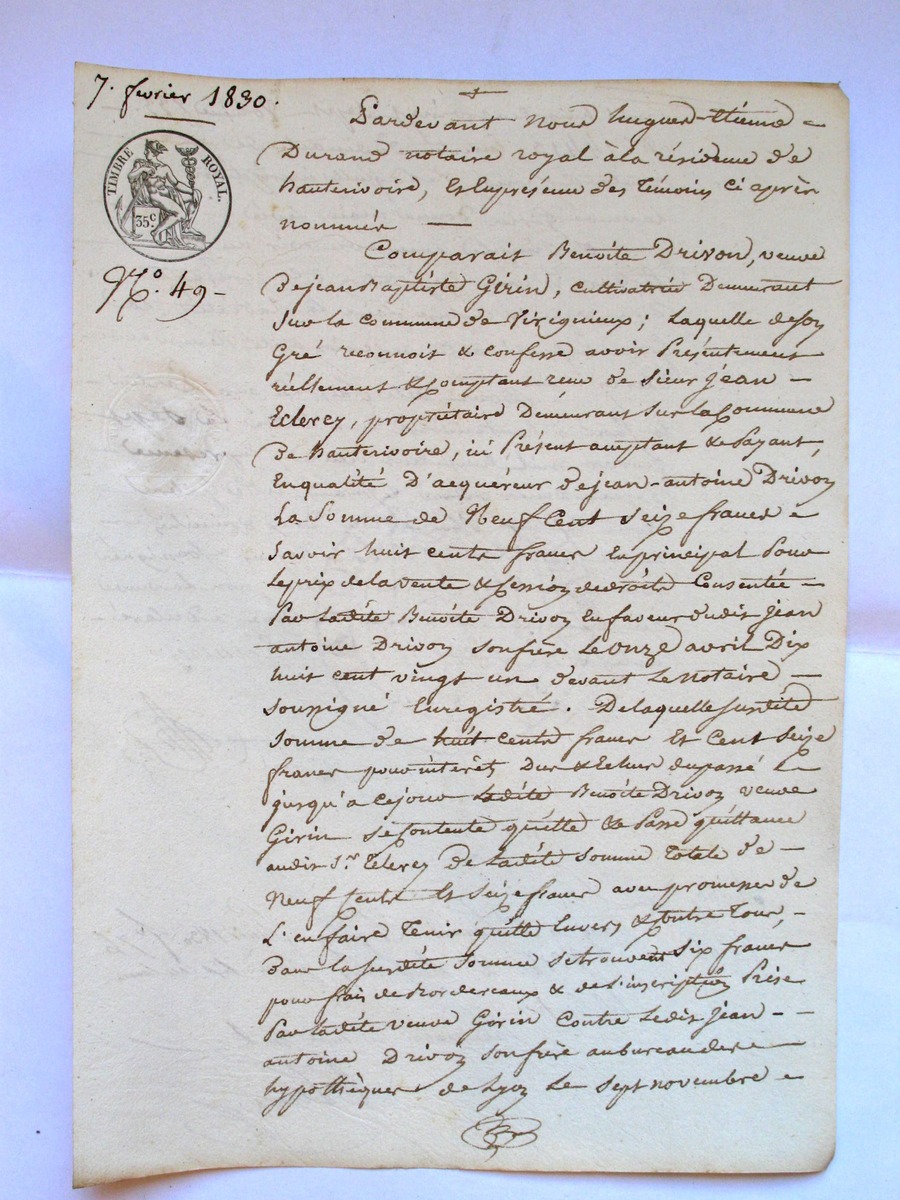 7. fevrier 1830.
TIMBRE ROYAL.
35 c
N.o 49 -
Pardevant Nous hugues-Etienne =
Durand notaire royal à la résidence de
hauterivoire, et en présence des témoins ci après
nommés —
Comparait Benoite Drivon, veuve
de jean Baptiste Girin, cultivatrice Demeurant
sur la commune de Virignieux ; Laquelle de son
Gré reconnoit & confesse avoir Présentement
réellement & Comptant reçu de sieur jean -
propriétaire Demeurant sur la Commune
de hauterivoire, ici Présent acceptant & Payant,
En qualité D'acquéreur de jean-antoine Drivon
La Somme de Neuf Cent seize francs =
Savoir huit cents francs En principal Pour
le prix de la vente & Cession de droits Consentie -
Par Ladite Benoite Drivon En faveur dudit jean
antoine Drivon son frère Le onze avril Dix
huit cent vingt un devant Le notaire —
soussigné Enregistré . De laquelle susdite
somme de huit cents francs Et Cent seize
francs pour intérêts Dus & Echus du passé
jusqu'à ce jour Ladite Benoite Drivon veuve
Girin se Contente quitte & Passe quittance
audit S.r de Ladite somme Totale de -
Neuf Cents Et seize francs avec promesse de
L'en faire Tenir quitte Envers & Contre Tous, -
Dans la susdite somme se trouvent six francs
pour frais de Bordereaux & de L'inscription Prise
Par Ladite veuve Girin Contre Ledit jean - -
antoine Drivon son frère au bureau des
hypothèques de Lyon Le sept novembre =